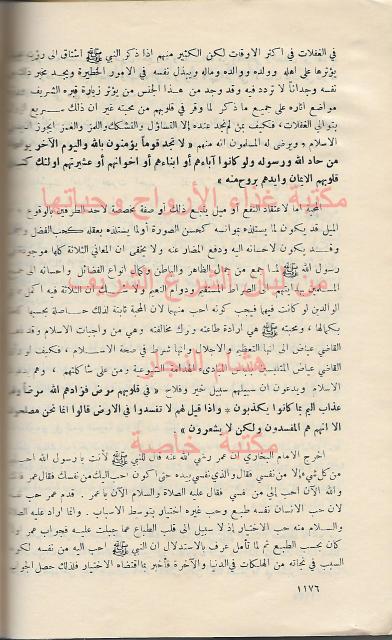 في الغفلات في اكثر الاوقات لكن الكثير منهم اذا ذكر النبي ﷺ اشتاق الى رؤيته
يؤثرها على اهله وولده ووالده وماله ويبذل نفسه في الامور الخطيرة ويجد مخبر ذلك
نفسه وجداناً لا تردد فيه وقد وجد من هذا الجنس من يؤثر زيارة قبره الشريف
مواضع آثاره على جميع ما ذكر لما وقر في قلوبهم من محبته غير ان ذلك سريع
بتوالي الغفلات، فكيف بمن لم نجد عنده إلا التساؤل والتشكك واللمز والغمز ايجوز
الاسلام، ويرضى له المسلمون انه منهم « لا تجد قوماً يؤمنون بالله واليوم الآخر يوادون
من حاد الله ورسوله ولو كانوا آباءهم أو ابناءهم أو اخوانهم أو عشيرتهم اولئك كتب
قلوبهم الايمان وايدهم بروح منه »
مكتبة غذاء الأرواح وحياتها
المحبة اما لاعتقاد النفع او ميل يتبع ذلك أو صفة مخصصة لاحد الطرفين بالوقوع
الميل قد يكون لما يستلذه بحواسه كحسن الصورة أو لما يستلذه بعقله كحب الفضل
وقد يكون لاحسانه اليه ودفع المضار عنه ولا يخفى ان المعاني الثلاثة كلها موجودة
رسول الله ﷺ لما جمع من جمال الظاهر والباطن وكمال انواع الفضائل واحسانه الى
من لسان الشرع الشريف
المسلمين بهدايتهم الى الصراط المستقيم ودوام النعيم ولا شك ان الثلاثة فيه اكمل
الوالدين لو كانت فيهما فيجب كونه احب منهما لان المحبة ثابتة لذلك حاصلة بحسبها
بكمالها، ومحبته ﷺ هي ارادة طاعته وترك مخالفته وهي من واجبات الاسلام وقد
القاضي عياض الى انها التعظيم والاجلال وانها شرط في صحة الاسلام، فكيف لو
هشام النجار
القاضي عياض
الاسلام ويدعون ان سبيلهم سبيل خير وفلاح « في قلوبهم مرض فزادهم الله مرضاً ولهم
عذاب اليم بما كانوا يكذبون » « واذا قيل لهم لا تفسدوا في الارض قالوا انما نحن مصلحون
الا انهم هم المفسدون ولكن لا يشعرون »
مكتبة خاصة
اخرج الامام البخاري ان عمر رضي الله عنه قال للنبي ﷺ لأنت يا رسول الله احب
من كل شيء إلا من نفسي فقال والذي نفسي بيده حتى اكون احب اليك من نفسك فقال عمر
والله الآن احب إلي من نفسي فقال عليه الصلاة والسلام الآن يا عمر. قدم عمر حب
لان حب الانسان نفسه طبع وحب غيره اختيار بتوسط الاسباب. وانما اراد عليه الصلاة
والسلام منه حب الاختيار إذ لا سبيل الى قلب الطباع عما جبلت عليه فجواب عمر
كان بحسب الطبع ثم لما تأمل عرف بالاستدلال ان النبي ﷺ احب اليه من نفسه لكونه
السبب في نجاته من الهلكات في الدنيا والآخرة فأخبر بما اقتضاه الاختيار فلذلك حصل الجواب
١١٧٦